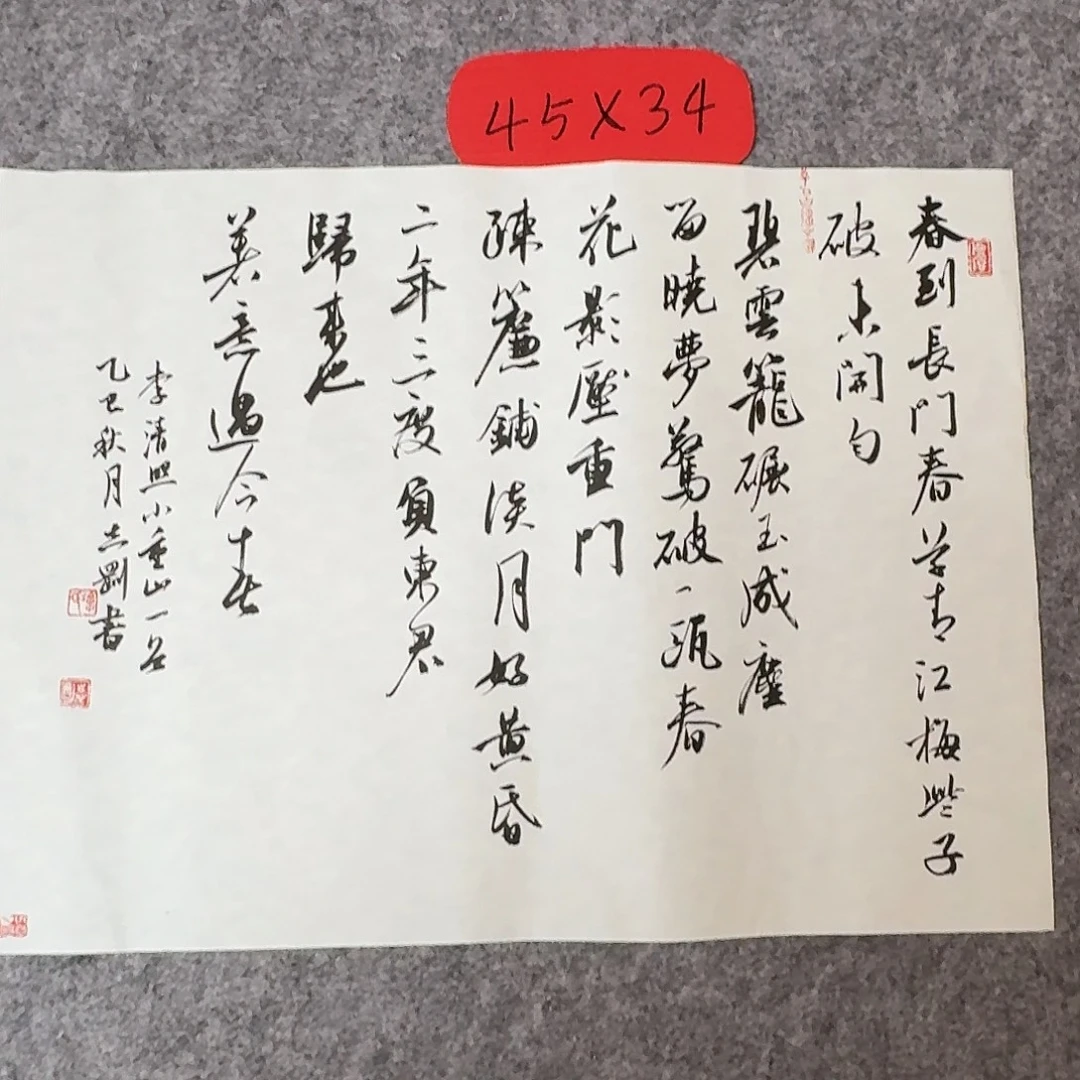 45X34
春到長門春草青江梅些子
破未開勻
碧雲籠碾玉成塵
留曉夢驚破一甌春
花影壓重門
疎簾鋪淡月好黄昏
二年三度負東君
歸來也
著意過今春
李清照小重山一首
乙巳秋月志剛書